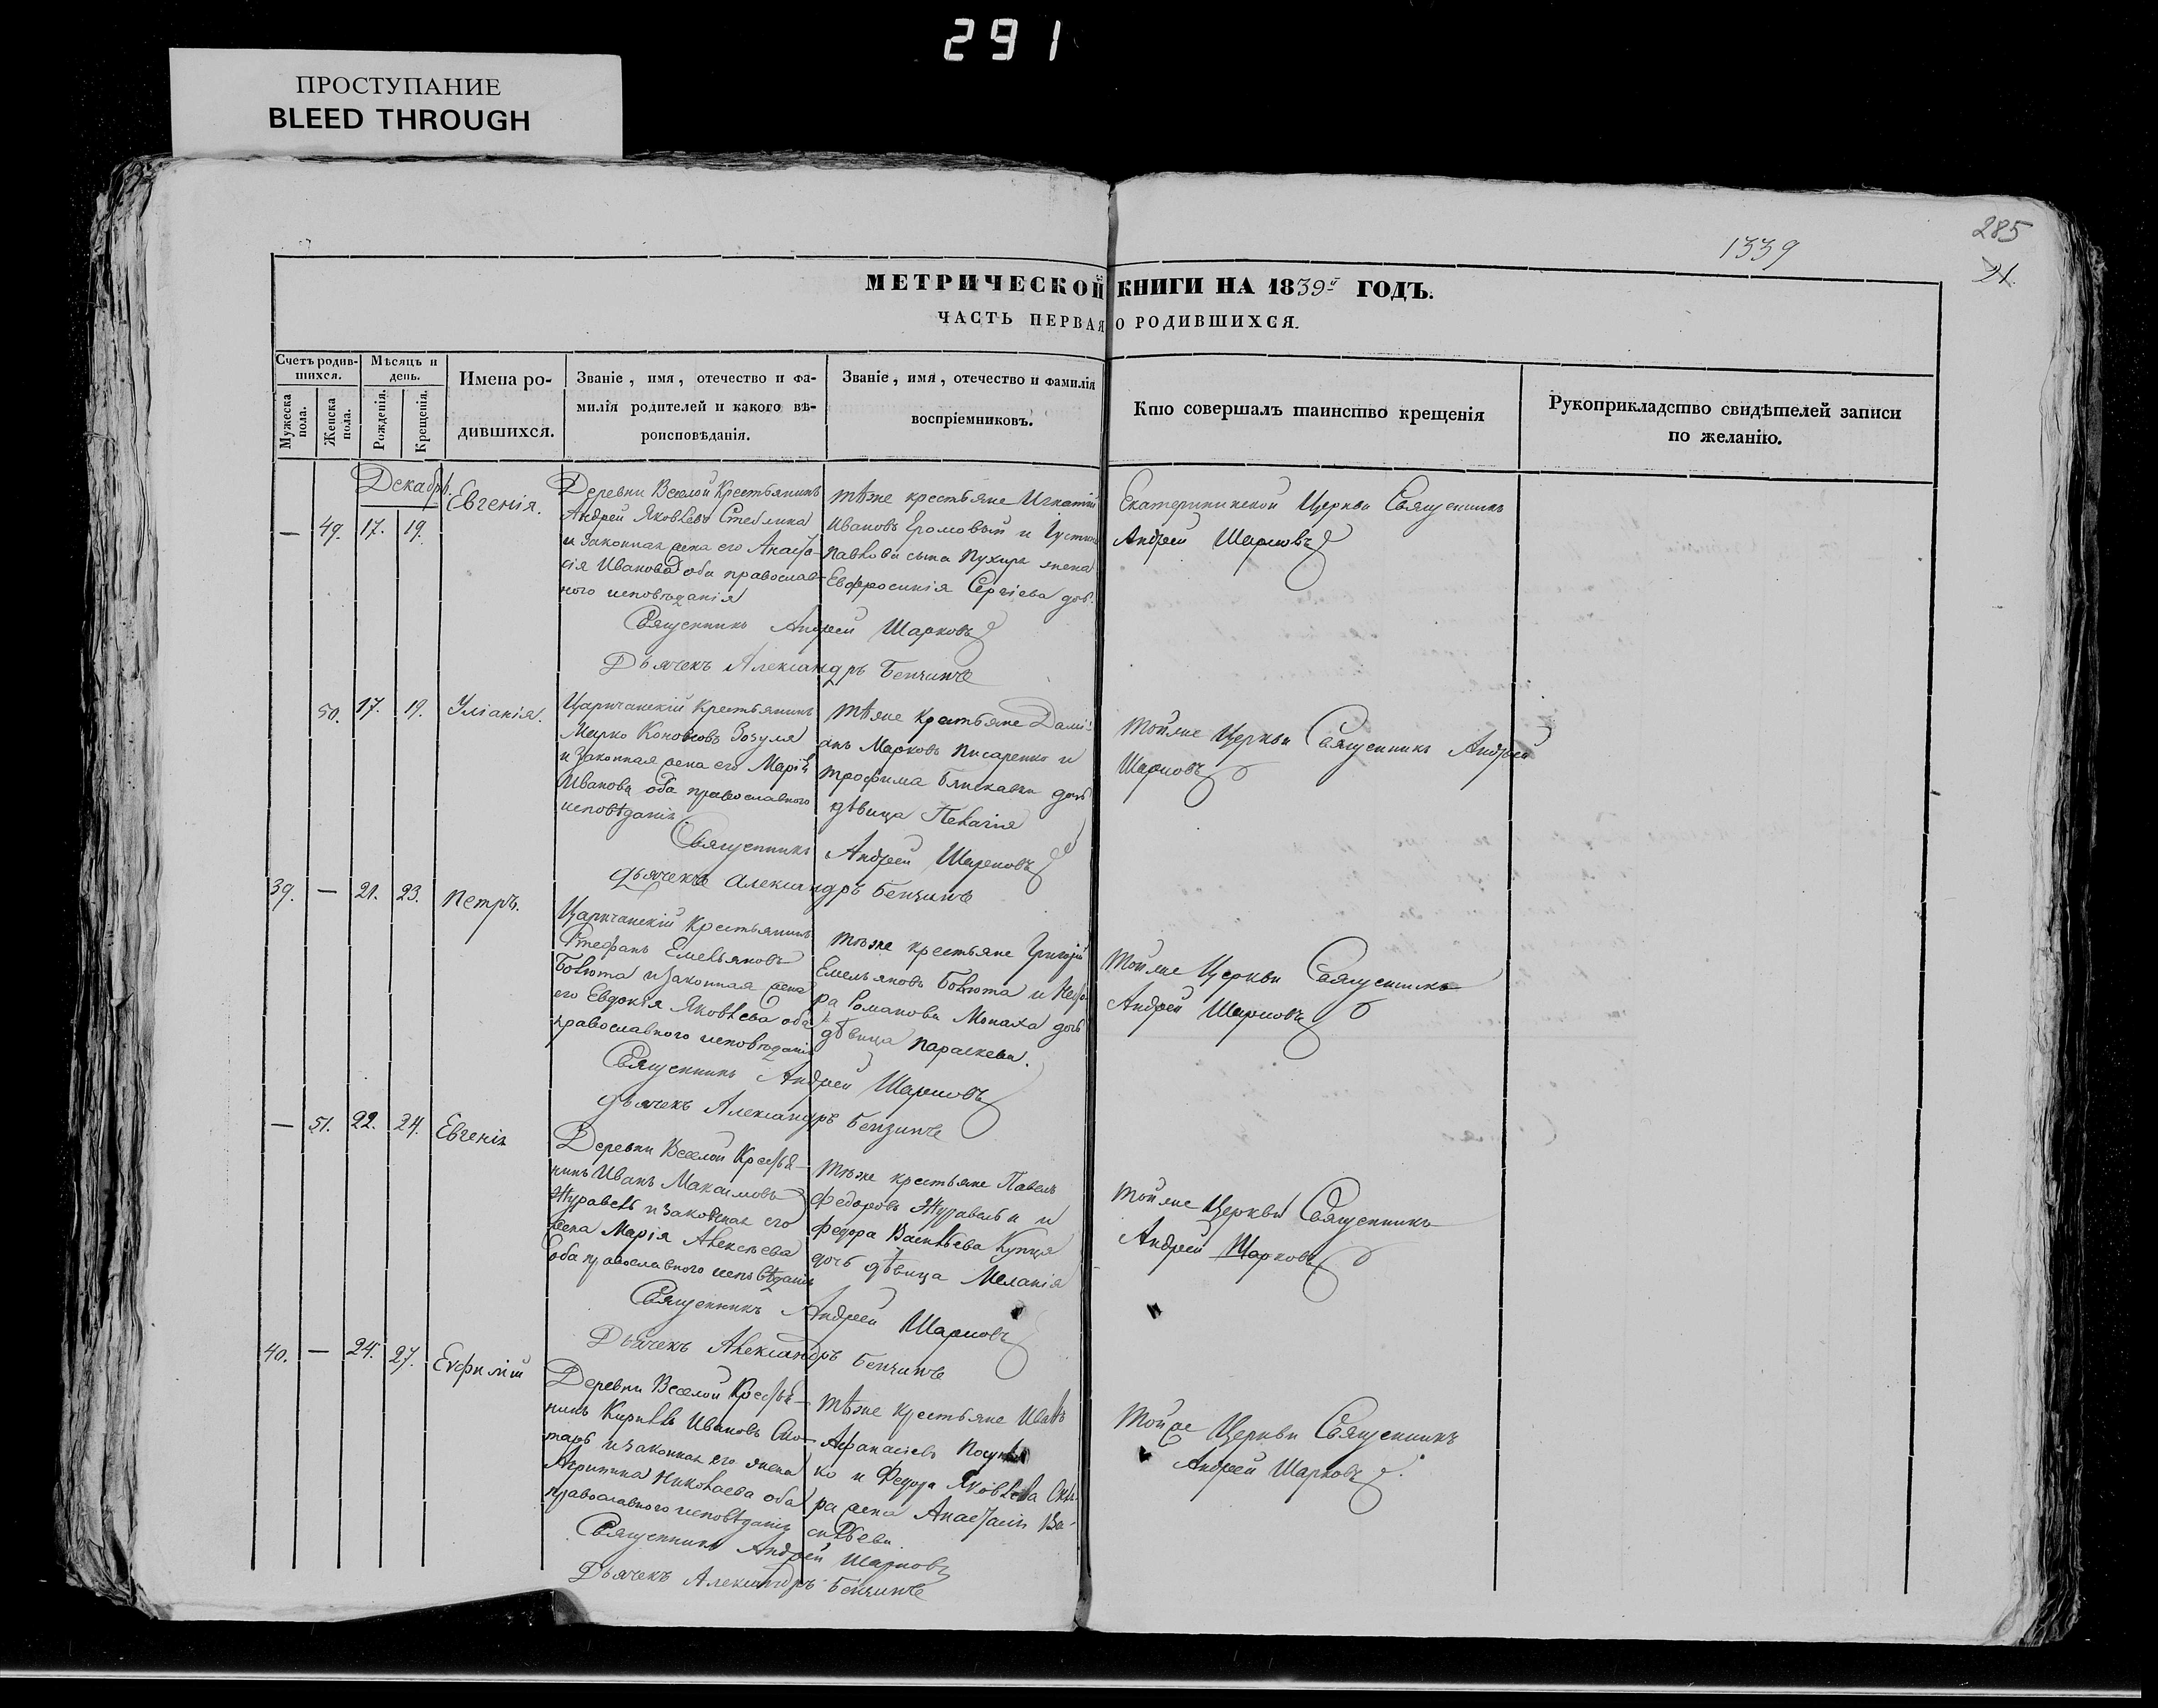 291
ПРОСТУПАНИЕ
BLEED THROUGH
285
1339
21.
МЕТРИЧЕСКОЙ КНИГИ НА 1839й ГОДЪ.
ЧАСТЬ ПЕРВАЯ О РОДИВШИХСЯ.
Счетъ родив-
шихся.
Мужеска
пола.
Женска
пола.
Мѣсяцъ и
день.
Рожденія.
Крещенія.
Имена ро-
дившихся.
Званіе, имя, отечество и фа-
милія родителей и какого вѣ-
роисповѣданія.
Званіе, имя, отечество и фамилія
воспріемниковъ.
Кто совершалъ таинство крещенія
Рукоприкладство свидѣтелей записи
по желанію.
Декабрь.
— 49. 17. 19. Евгенія.
Деревни Веселой Крестьянинъ
Андрей Яковлевъ Стеблина
и законная жена его Анаста-
сія Иванова оба православ-
ного исповѣданія
тѣже крестьяне Игнатій
Ивановъ Громовый и Густина
Павлова сына Пухира жена
Евфросинія Сергіева доч.
Екатерининской Церкви Священникъ
Андрей Шарковъ
Священникъ Андрей Шарковъ
Дьячекъ Александръ
50. 17. 19. Уліанія.
Царичанскій Крестьянинъ
Марко Коновъ Зозуля
и законная жена его Марія
Иванова оба православного
исповѣданія
тѣже Крестьяне Дамі-
анъ Марковъ Писаренко и
Трофима Блискавки дочь
дѣвица Пелагія
Тойже Церкви Священникъ Андрей
Шарковъ
Священникъ Андрей Шарковъ
дьячекъ Александръ
39. — 21. 23. Петръ.
Царичанскій Крестьянинъ
Стефанъ Емельяновъ
Болюта и законная жена
его Евдокія Яковлева оба
православного исповѣданія
тѣже крестьяне Григорій
Емельяновъ Болюта и
ра Романова Монаха дочь
дѣвица Параскева.
Тойже Церкви Священникъ
Андрей Шарковъ
Священникъ Андрей Шарковъ
дьячекъ Александръ
— 51. 22. 24. Евгенія
Деревни Веселой Кресья-
нинъ Иванъ Максимовъ
Журавель и законная его
жена Марія Алексѣева
оба православного исповѣданія
тѣже крестьяне Павелъ
Федоровъ Журавель и
Федора Васильева Купця
дочь дѣвица Меланія
Тойже Церкви Священникъ
Андрей Шарковъ
Священникъ Андрей Шарковъ
Дьячекъ Александръ
40. — 24. 27. Евфимій
Деревни Веселой Кресьья-
нинъ Кирилъ Ивановъ
и законная его жена
Агрипина Николаева оба
православного исповѣданія
тѣже крестьяне Иванъ
Афанасіевъ
ко и Федора Яковлева
ра жена Анастасія Ва-
сильева.
Тойже Церкви Священникъ
Андрей Шарковъ
Священникъ Андрей Шарковъ
Дьячекъ Александръ